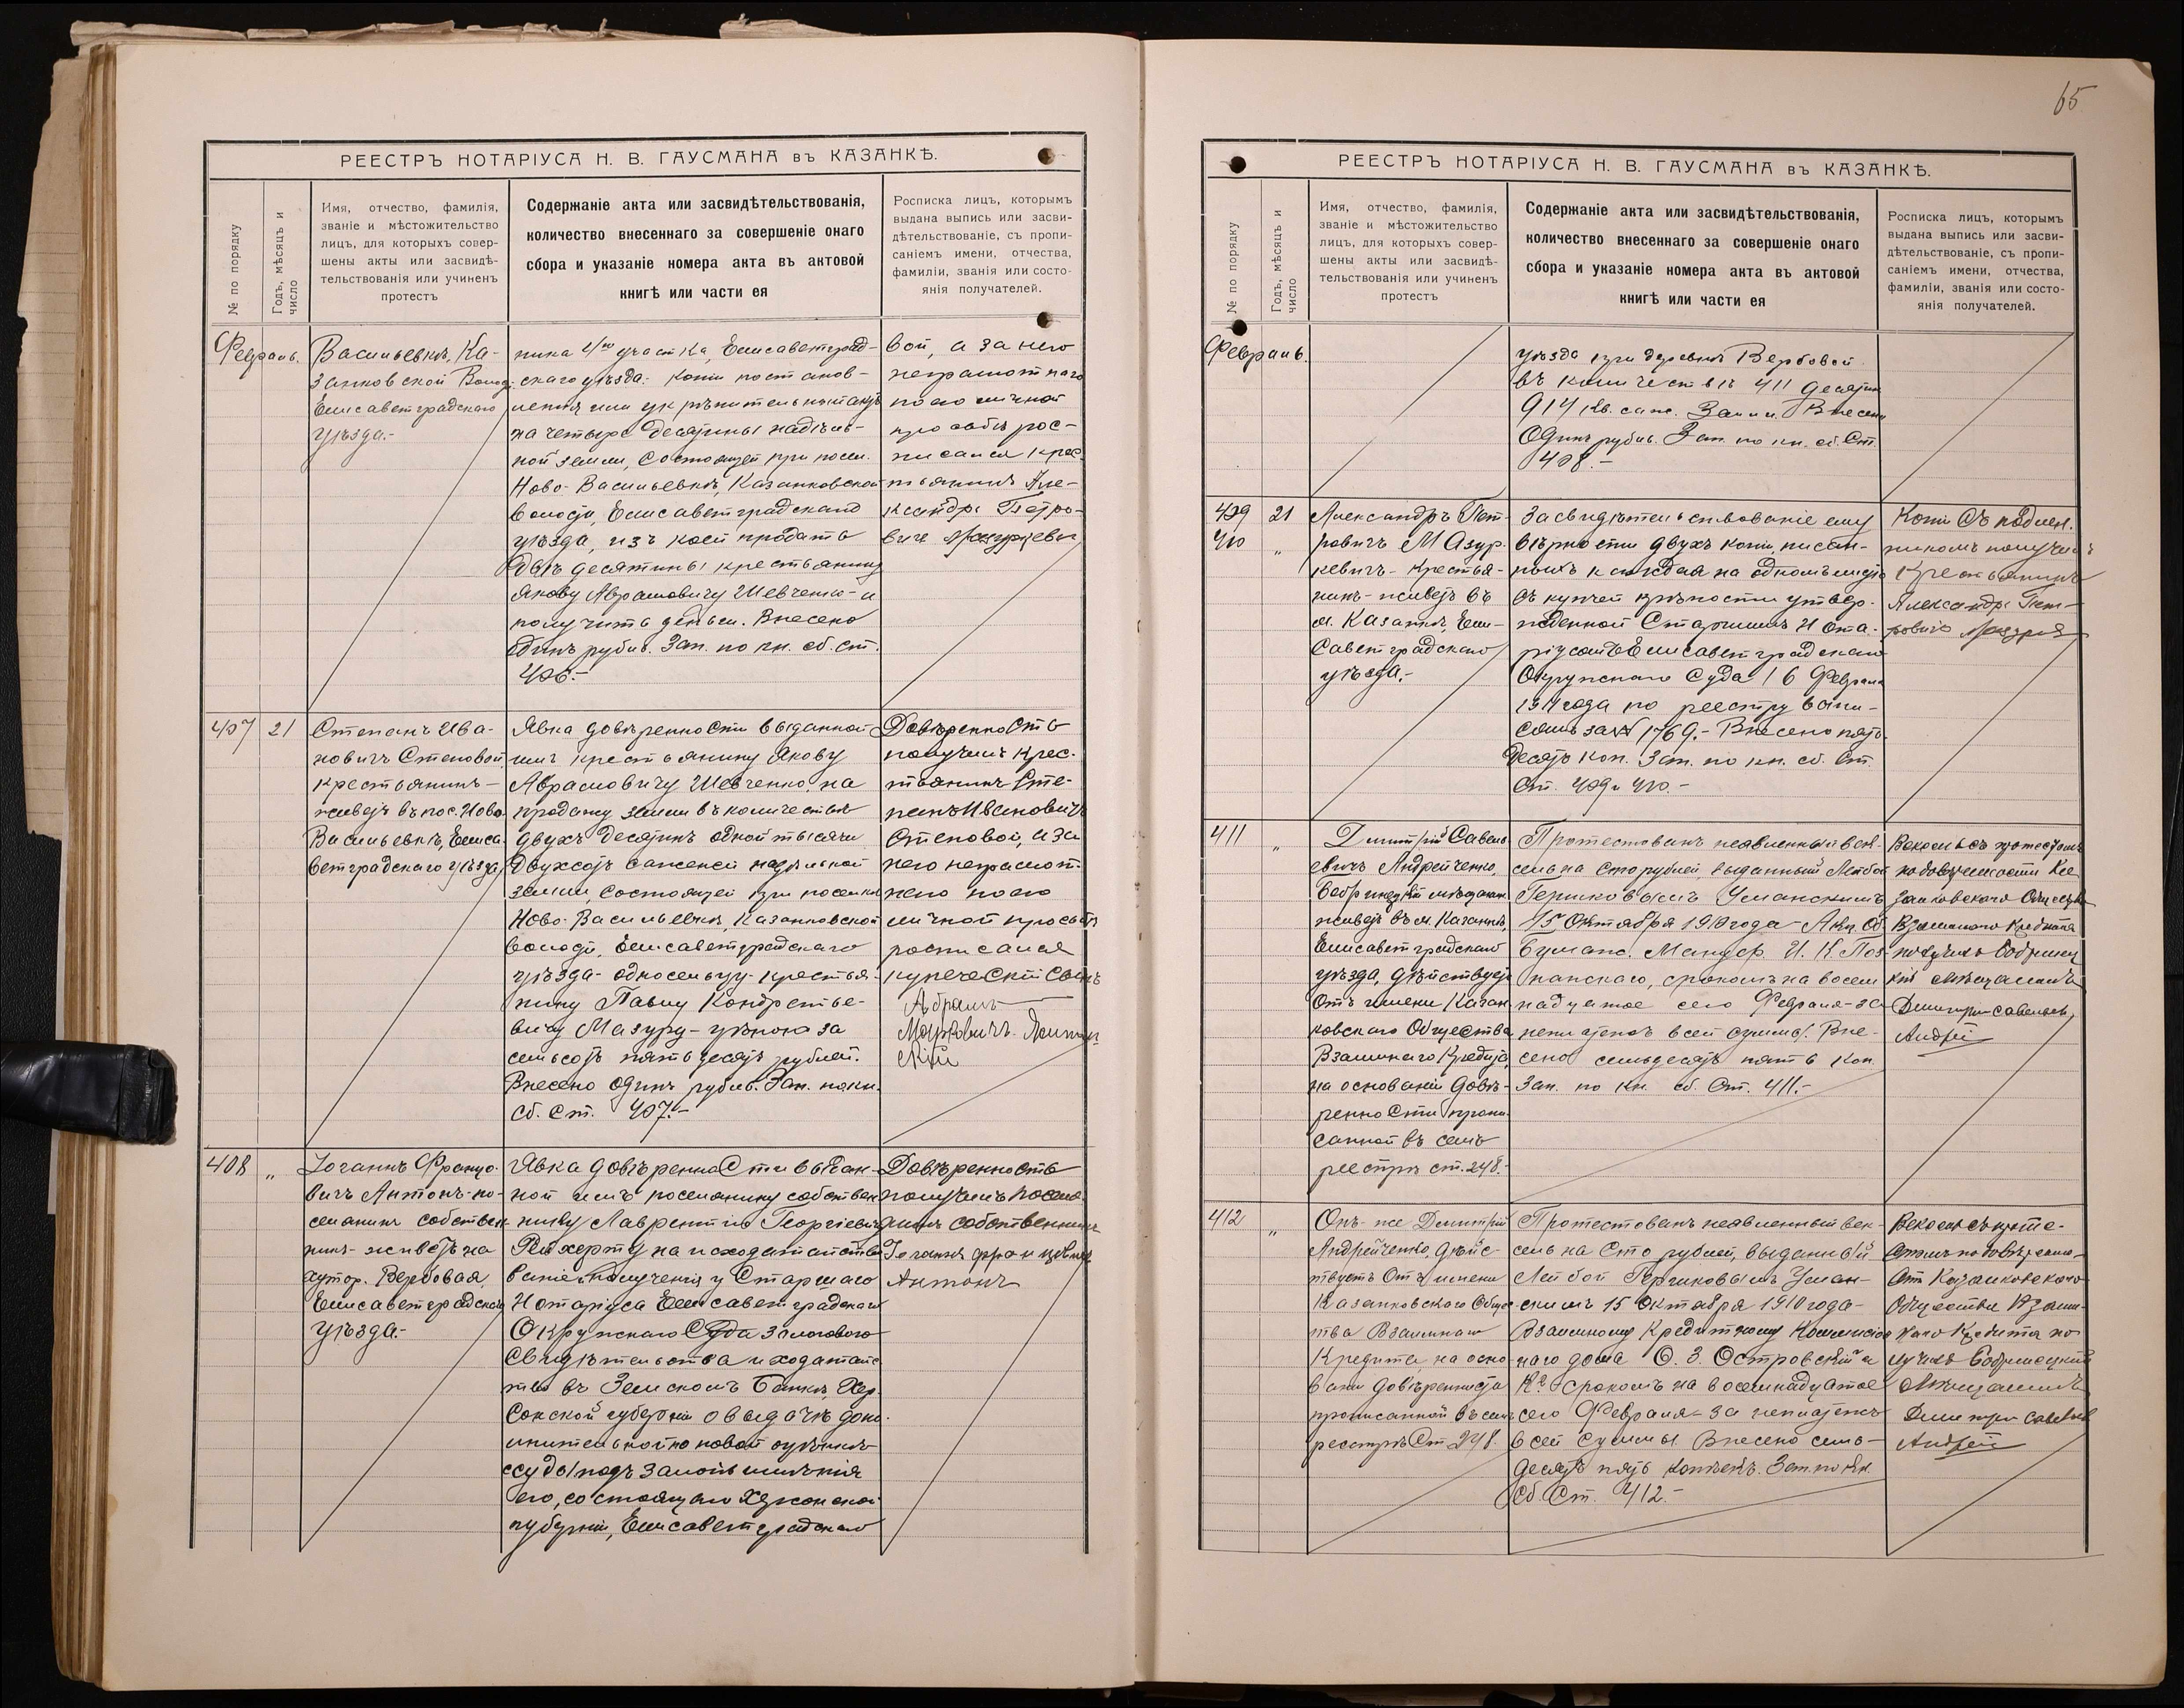 РЕЕСТРЪ НОТАРІУСА Н. В. ГАУСМАНА въ КАЗАНКѢ.
№ по порядку
Годъ, мѣсяцъ и
число
Имя, отчество, фамилія,
званіе и мѣстожительство
лицъ, для которыхъ совер-
шены акты или засвидѣ-
тельствованія или учиненъ
протестъ
Содержаніе акта или засвидѣтельствованія,
количество внесеннаго за совершеніе онаго
сбора и указаніе номера акта въ актовой
книгѣ или части ея
Росписка лицъ, которымъ
выдана выпись или засви-
дѣтельствованіе, съ пропи-
саніемъ имени, отчества,
фамиліи, званія или состо-
янія получателей.
Февраль.
Васильевкѣ, Ка-
занковской Волос.
Елисаветградскаго
уѣзда.-
ника 4го участка, Елисаветград-
скаго уѣзда: копіи постанов-
ленія или укрѣпительный актъ
на четыре десятины надѣль-
ной земли, состоящей при посел.
Ново-Васильевкѣ, Казанковской
волости, Елисаветградскаго
уѣзда, изъ коей продать
двѣ десятины крестьянину
Якову Абрамовичу Шевченко-и
получить деньги. Внесено
одинъ рубль. Зап. по кн. сб. ст.
406.-
вой, а за него
неграмотнаго
по его личной
просьбѣ рос-
писался крес-
тьянинъ Але-
ксандръ Петро-
вичъ Мазуркевич
407
21
Степанъ Ива-
новичъ Степовой
крестьянинъ-
живетъ въ пос. Ново-
Васильевкѣ, Елиса-
ветградскаго уѣзда
Явка довѣренности выданной
имъ крестьянину Якову
Абрамовичу Шевченко, на
продажу земли въ количествѣ
двухъ десятинъ одной тысячи
двухсотъ саженей надѣльной
земли, состоящей при поселкѣ
Ново-Васильевкѣ, Казанковской
волости, Елисаветградскаго
уѣзда-односельцу-крестья-
нину Павлу Кондратье-
вичу Мазуру-цѣною за
семьсотъ пятьдесятъ рублей.
Внесено одинъ рубль. Зап. по кн.
сб. ст. 407.-
Довѣренность
получилъ крес-
тьянинъ Сте-
панъ Ивановичъ
Степовой, а за
него неграмот-
наго по его
личной просьбѣ
росписался
купеческій сынъ
Абрамъ
408
"
Іоганнъ Францо-
вичъ Антонъ-по-
селянинъ собствен-
никъ-живетъ на
хутор. Вербовая
Елисаветградскаго
уѣзда.-
Явка довѣренности выдан-
ной имъ поселянину собствен-
нику Лаврентію Георгіевичу
Рейхерту на исходатайство-
ваніе и полученія у Старшаго
Нотаріуса Елисаветградскаго
Окружнаго Суда залогового
свидѣтельства и ходатайс-
тво въ Земскомъ Банкѣ Хер-
сонской губерніи о выдачѣ допо-
лнительной по новой оцѣнкѣ
ссуды подъ залогъ имѣнія
его, состоящаго Херсонской
губерніи, Елисаветградскаго
Довѣренность
получилъ поселя-
нинъ собственникъ
Іоганнъ Францовичъ
Антонъ
65
РЕЕСТРЪ НОТАРІУСА Н. В. ГАУСМАНА въ КАЗАНКѢ.
№ по порядку
Годъ, мѣсяцъ и
число
Имя, отчество, фамилія,
званіе и мѣстожительство
лицъ, для которыхъ совер-
шены акты или засвидѣ-
тельствованія или учиненъ
протестъ
Содержаніе акта или засвидѣтельствованія,
количество внесеннаго за совершеніе онаго
сбора и указаніе номера акта въ актовой
книгѣ или части ея
Росписка лицъ, которымъ
выдана выпись или засви-
дѣтельствованіе, съ пропи-
саніемъ имени, отчества,
фамиліи, званія или состо-
янія получателей.
Февраль.
уѣзда при деревнѣ Вербовой
въ количествѣ 411 десятин
914 кв. саж. земли. Внесено
Одинъ рубль. Зап. по кн. сб. ст.
408.-
409
410
21
"
Александръ Пет-
ровичъ Мазур-
кевичъ-крестья-
нинъ-живетъ въ
м. Казанкѣ, Ели-
саветградскаго
уѣзда.-
Засвидѣтельствованіе ему
вѣрности двухъ копій, писан-
ныхъ каждая на одномъ листѣ
съ купчей крѣпости утвер-
жденной Старшимъ Нота-
ріусомъ Елисаветградскаго
Окружнаго Суда 16 Февраля
1911 года по реестру вами-
самъ за № 1769.- Внесено пять-
десятъ коп. Зап. по кн. сб. Ст.
Ст. 409 и 410.-
Копіи съ подлин-
никомъ получилъ
крестьянинъ
Александръ Пет-
ровичъ
411
"
Димитрій Савель-
евичъ Андрейченко,
Бобринецкій мѣщанин
живетъ въ м. Казанкѣ,
Елисаветградскаго
уѣзда, дѣйствуетъ
отъ имени Казан-
ковскаго Общества
Взаимнаго Кредита
на основаніи довѣ-
ренности пропи-
санной въ семъ
реестрѣ ст. 248.-
Протестованъ неявленный век-
сель на сто рублей, выданный Лейбой
Гершковымъ Уманскимъ
15 Октября 1910 года-Акц. Об.
Бумагс. Мануф. И. К. Поз-
нанскаго, срокомъ на восем-
надцатое сего Февраля-за
неплатежъ всей суммы. Вне-
сено семьдесятъ пять коп.
Зап. по кн. сб. Ст. 411.-
Вексель съ протестомъ
по довѣренности Ка-
занковскаго Общества
Взаимнаго Кредита
получилъ Бобринец-
кій мѣщанинъ
Димитри Савельев
Андрей
412
"
Онъ-же Димитрій
Андрейченко, дѣйс-
твуетъ отъ имени
Казанковского Общес-
тва Взаимнаго
Кредита, на осно-
ваніи довѣренности
прописанной въ семъ
реестрѣ Ст 248.
Протестованъ неявленный век-
сель на сто рублей, выданный
Лейбой Гершковымъ Уман-
скимъ 15 Октября 1910 года-
Взаимному Кредитному Комиссіон-
наго дома О. З. Островскій и
Ко срокомъ на восемнадцатое
сего Февраля-за неплатежъ
всей суммы. Внесено семь-
десятъ пять копѣекъ. Зап. по кн.
сб. Ст. 412.-
Вексель съ проте-
стомъ по довѣренно-
От Казанковскаго
Общества Взаим-
наго Кредита по-
лучилъ Бобринецкій
мѣщанинъ
Димитри Савельев
Андрей